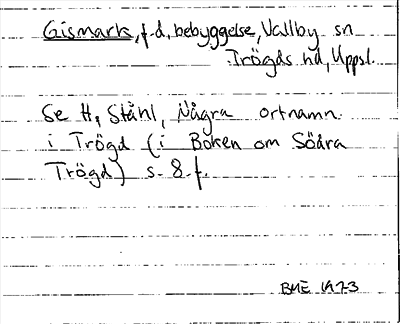 Gismark, f.d. bebyggelse, Vallby sn
Trögds hd, Uppsl.
Se H, Ståhl, Några ortnamn
i Trögd (i Boken om Södra
Trögd) s. 8 f.
BME 1973